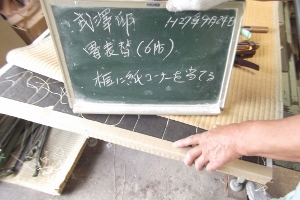 武澤邸 H27年9月24日
畳表替(6帖)
框に紙コーナーを当てる